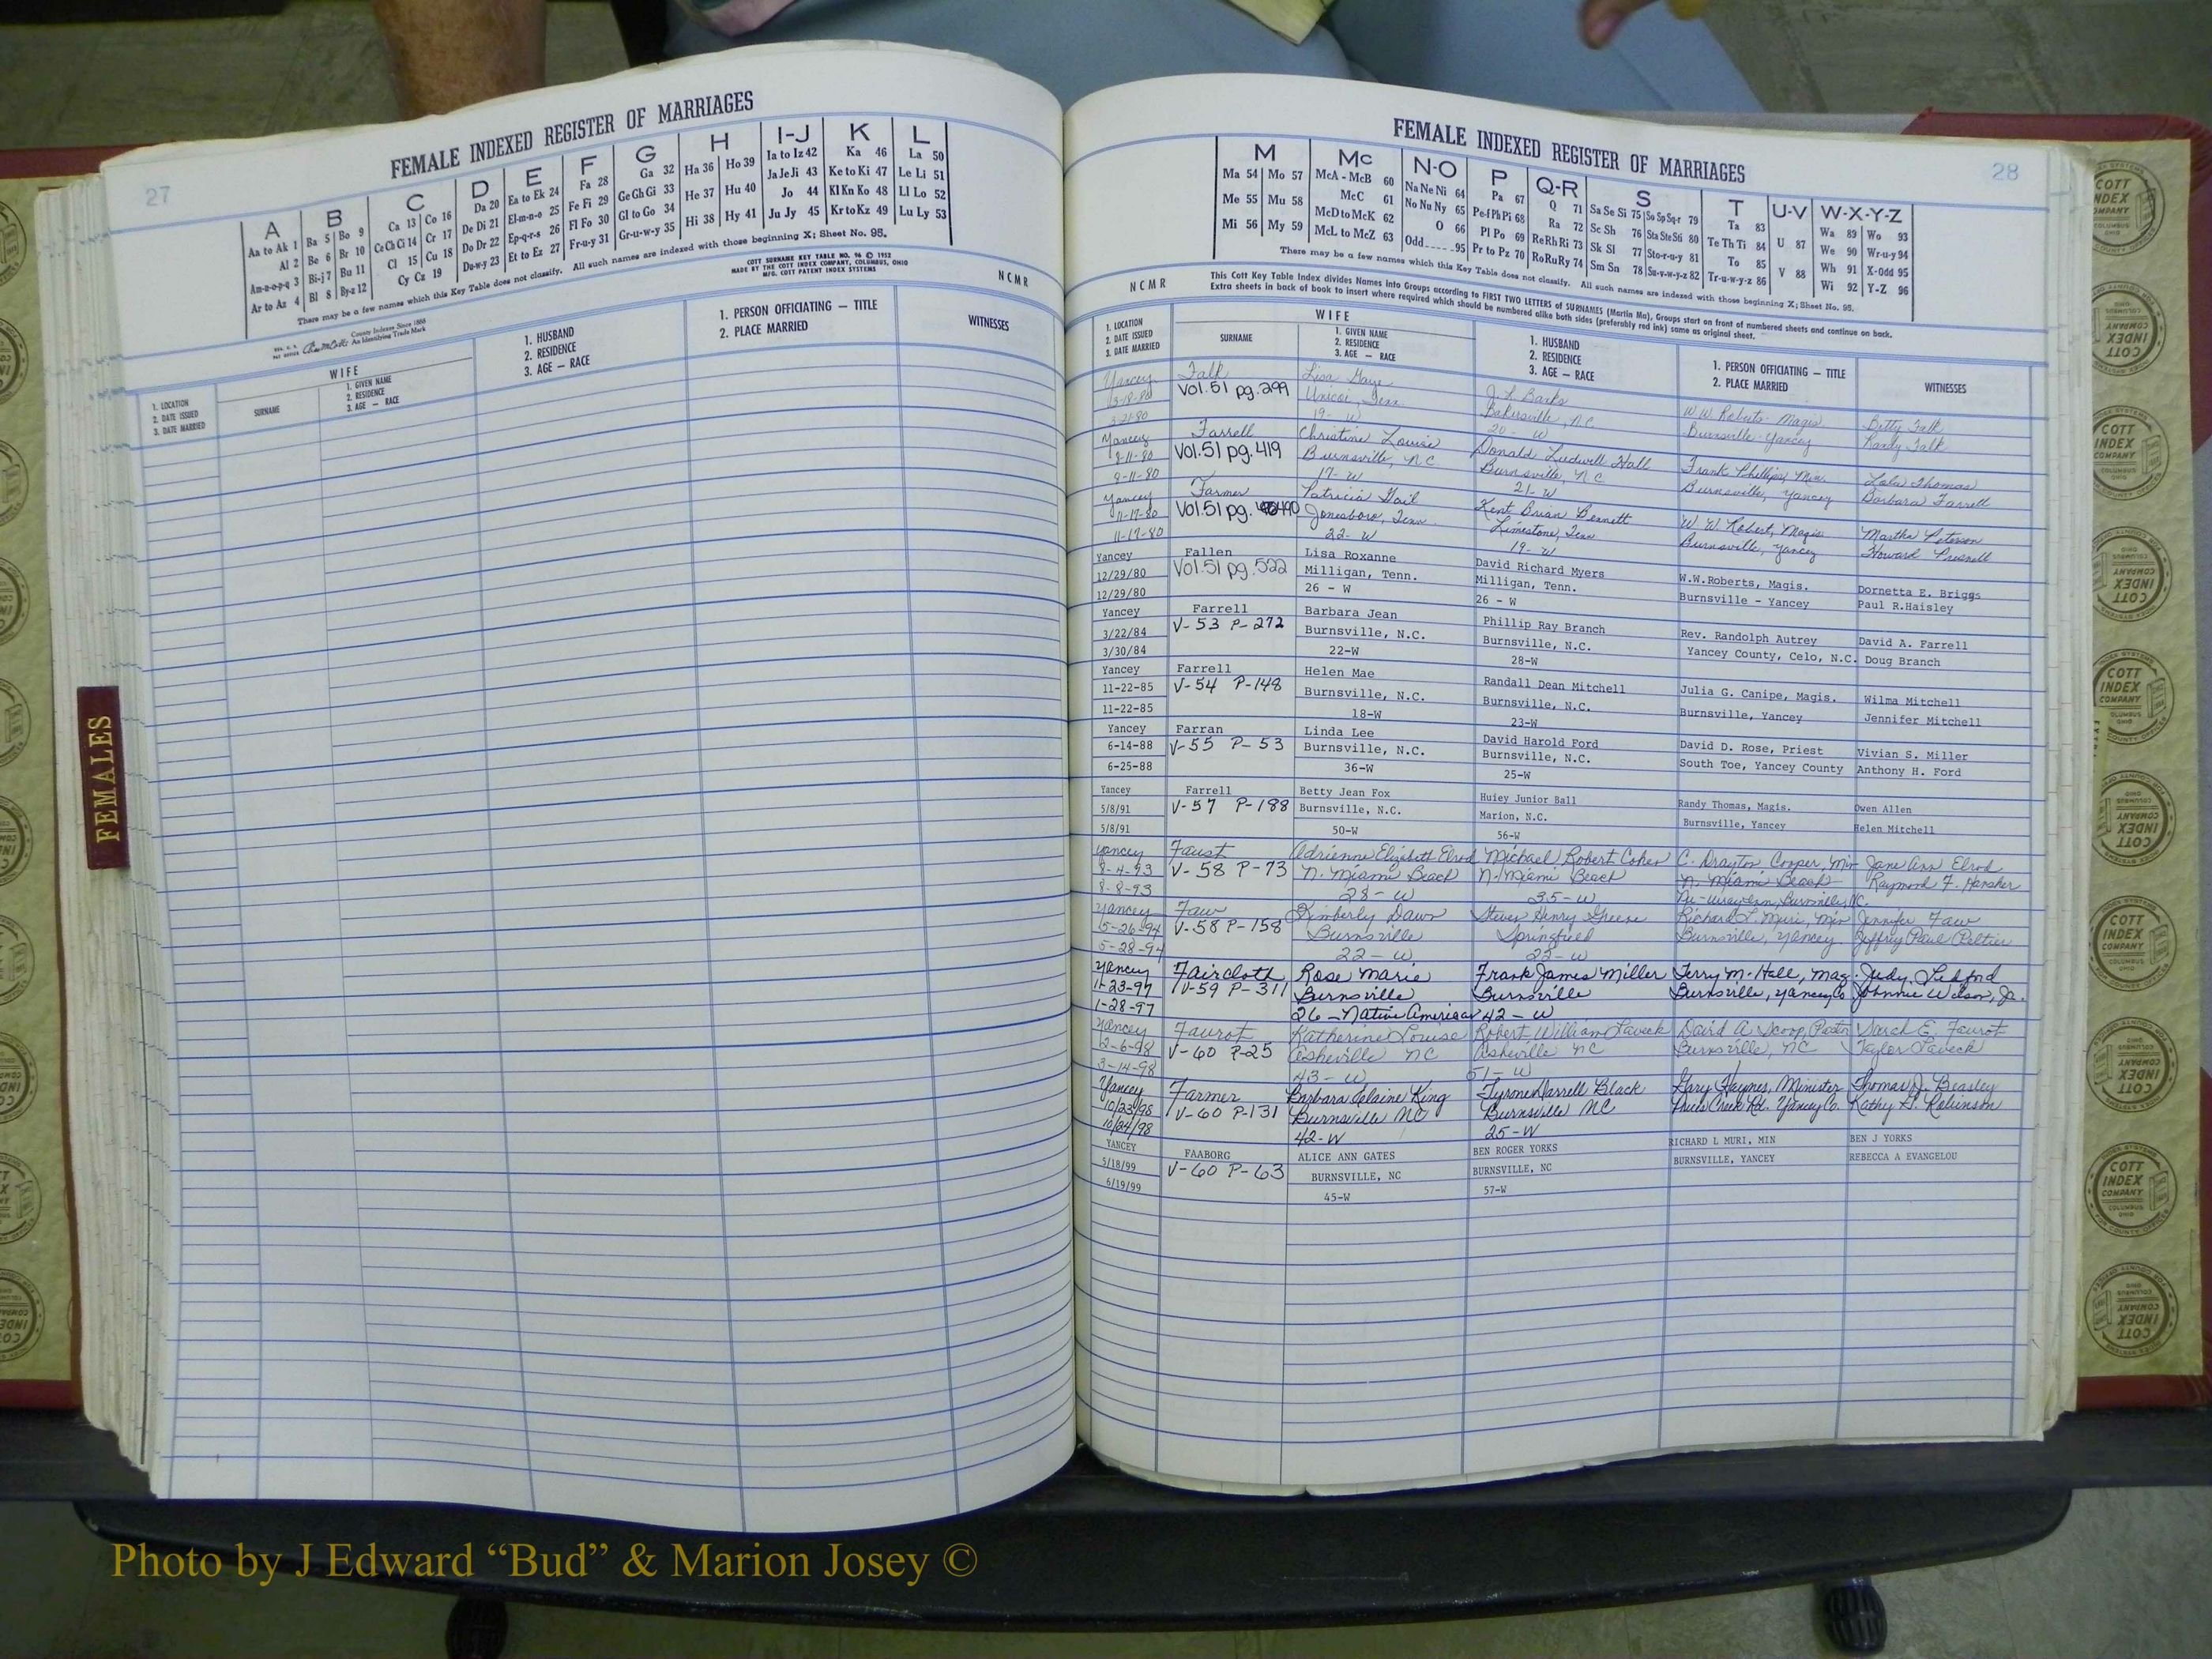 27
FEMALE INDEXED REGISTER OF MARRIAGES
A B C D E F G H I-J K L
Aa to Ak 1 Ba 5 Bo 9 Ca 13 Co 16 Da 20 Ea to Ek 24 Fa 28 Ga 32 Ha 36 Ho 39 Ia to Iz 42 Ka 46 La 50
Al 2 Be 6 Br 10 Ce Ch Ci 14 Cr 17 De Di 21 El-m-n-o 25 Fe Fi 29 Ge Gh Gi 33 He 37 Hu 40 Ja Je Ji 43 Ke to Ki 47 Le Li 51
Am-n-o-p-q 3 Bi-j 7 Bu 11 Cl 15 Cu 18 Do Dr 22 Ep-q-r-s 26 Fl Fo 30 Gl to Go 34 Hi 38 Hy 41 Jo 44 Kl Kn Ko 48 Ll Lo 52
Ar to Az 4 Bl 8 By-z 12 Cy Cz 19 Du-w-y 23 Et to Ez 27 Fr-u-y 31 Gr-u-w-y 35 Ju Jy 45 Kr to Kz 49 Lu Ly 53
There may be a few names which this Key Table does not classify. All such names are indexed with those beginning X; Sheet No. 95.
COTT SURNAME KEY TABLE NO. 96 © 1952
MADE BY THE COTT INDEX COMPANY, COLUMBUS, OHIO
MFG. COTT PATENT INDEX SYSTEMS
NCMR
County Indexes Since 1888
An Identifying Trade Mark
WIFE
1. LOCATION
2. DATE ISSUED
3. DATE MARRIED
SURNAME
1. GIVEN NAME
2. RESIDENCE
3. AGE — RACE
1. HUSBAND
2. RESIDENCE
3. AGE — RACE
1. PERSON OFFICIATING — TITLE
2. PLACE MARRIED
WITNESSES
FEMALES
28
FEMALE INDEXED REGISTER OF MARRIAGES
M Mc N-O P Q-R S T U-V W-X-Y-Z
Ma 54 Mo 57 McA - McB 60 Na Ne Ni 64 Pa 67 Q 71 Sa Se Si 75 So Sp Sq-r 79 Ta 83 U 87 Wa 89 Wo 93
Me 55 Mu 58 McC 61 No Nu Ny 65 Pe-f Ph Pi 68 Ra 72 Sc Sh 76 Sta Ste Sti 80 Te Th Ti 84 V 88 We 90 Wr-u-y 94
Mi 56 My 59 McD to McK 62 O 66 Pl Po 69 Re Rh Ri 73 Sk Sl 77 Sto-r-u-y 81 To 85 Wh 91 X-Odd 95
McL to McZ 63 Odd 95 Pr to Pz 70 Ro Ru Ry 74 Sm Sn 78 Su-v-w-y-z 82 Tr-u-w-y-z 86 Wi 92 Y-Z 96
There may be a few names which this Key Table does not classify. All such names are indexed with those beginning X; Sheet No. 95.
NCMR
This Cott Key Table Index divides Names into Groups according to FIRST TWO LETTERS of SURNAMES (Martin Ma), Groups start on front of numbered sheets and continue on back.
Extra sheets in back of book to insert where required which should be numbered alike both sides (preferably red ink) same as original sheet.
WIFE
1. LOCATION
2. DATE ISSUED
3. DATE MARRIED
SURNAME
1. GIVEN NAME
2. RESIDENCE
3. AGE — RACE
1. HUSBAND
2. RESIDENCE
3. AGE — RACE
1. PERSON OFFICIATING — TITLE
2. PLACE MARRIED
WITNESSES
Yancey Falk Lisa Gaye J. L. Banks W.W. Roberts- Magis Betty Falk
3-18-80 Vol.51 pg.299 Unicoi, Tenn Bakersville, NC Burnsville-Yancey Randy Falk
3-21-80 19- W 20- W
Yancey Farrell Christine Louise Donald Ludwill Hall Frank Phillips, Min. Lola Thomas
Vol.51 pg.419 Burnsville, NC Burnsville, NC Burnsville, Yancey Barbara Farrell
17- W 21- W
Yancey Farmer Patricia Gail Kent Brian Bennett W W Robert, Magis Martha Peterson
11-17-80 Vol.51 pg. 490 Jonesboro, Tenn. Limestone, Tenn Burnsville, Yancey Howard Presnell
11-17-80 22- W 19- W
Yancey Fallen Lisa Roxanne David Richard Myers W.W.Roberts, Magis. Dornetta E. Briggs
12/29/80 Vol.51 pg.522 Milligan, Tenn. Milligan, Tenn. Burnsville - Yancey Paul R.Haisley
12/29/80 26 - W 26 - W
Yancey Farrell Barbara Jean Phillip Ray Branch Rev. Randolph Autrey David A. Farrell
3/22/84 V-53 P-272 Burnsville, N.C. Burnsville, N.C. Yancey County, Celo, N.C. Doug Branch
3/30/84 22-W 28-W
Yancey Farrell Helen Mae Randall Dean Mitchell Julia G. Canipe, Magis. Wilma Mitchell
11-22-85 V-54 P-148 Burnsville, N.C. Burnsville, N.C. Burnsville, Yancey Jennifer Mitchell
11-22-85 18-W 23-W
Yancey Farran Linda Lee David Harold Ford David D. Rose, Priest Vivian S. Miller
6-14-88 V-55 P-53 Burnsville, N.C. Burnsville, N.C. South Toe, Yancey County Anthony H. Ford
6-25-88 36-W 25-W
Yancey Farrell Betty Jean Fox Huiey Junior Ball Randy Thomas, Magis. Owen Allen
5/8/91 V-57 P-188 Burnsville, N.C. Marion, N.C. Burnsville, Yancey Helen Mitchell
5/8/91 50-W 56-W
Yancey Faust Adrienne Elizabeth Elrod Michael Robert Cohen C. Drayton Cooper, Min Jane Ann Elrod
8-4-93 V-58 P-73 N. Miami Beach N. Miami Beach N. Miami Beach Raymond F. Hansher
8-8-93 28-W 35-W Nu-Wray Inn, Burnsville, NC.
Yancey Faw Kimberly Dawn Steven Henry Greene Richard L. Muri, Min Jennifer Faw
5-26-94 V-58 P-158 Burnsville Springfield Burnsville, Yancey Jeffrey Paul Peltier
5-28-94 22-W 22-W
Yancey Faircloth Rose Marie Frank James Miller Terry M. Hall, Mag. Judy Ledford
1-23-97 V-59 P-311 Burnsville Burnsville Burnsville, Yancey Co Johnnie Wilson, Jr.
1-28-97 26-Native American 42-W
Yancey Faurot Katherine Louise Robert William Laveck Sarah E. Faurot
2-6-98 V-60 P-25 Asheville NC Asheville NC Burnsville, NC Taylor Laveck
3-14-98 43-W 51-W
Yancey Farmer Barbara Elaine King Tyrone Darrell Black Gary Haynes, Minister Thomas J. Beasley
10/23/98 V-60 P-131 Burnsville NC Burnsville NC Yancey Co. Kathy S. Robinson
10/24/98 42-W 25-W
YANCEY FAABORG ALICE ANN GATES BEN ROGER YORKS RICHARD L MURI, MIN BEN J YORKS
5/18/99 V-60 P-63 BURNSVILLE, NC BURNSVILLE, NC BURNSVILLE, YANCEY REBECCA A EVANGELOU
6/19/99 45-W 57-W
COTT INDEX COMPANY COLUMBUS OHIO
Photo by J Edward “Bud” & Marion Josey ©